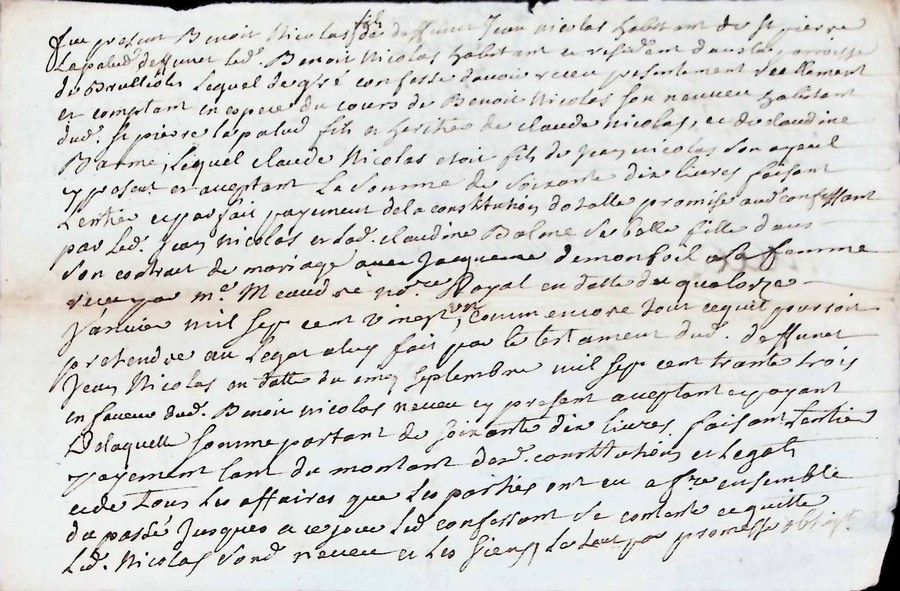 Fut present Benoit Nicolas fils de deffunct Jean nicolas habitant de st pierre
Lapalud deffunct led. Benoit Nicolas habitant et resident dans la parroisse
de Brullioles Lequel de gré confesse davoir receu presentement reellement
et comptant en espece du cours de Benoit Nicolas son neuveu habitant
dud. st pierre lapalud fils et heritier de claude nicolas, et de claudine
Balme, Lequel claude Nicolas etoit fils de Jean nicolas son ayeul
cy present et acceptant La Somme de Soixante dix livres faisant
Lentier et parfait payement de la constitution dotalle promise aud. confessant
par led. Jean nicolas et lad. claudine Balme Sa belle fille dans
Son contrat de mariage avec Jacqueme demonfoil a la femme
receu par me. Meaudre nore. Royal en datte du quatorze
Janvier mil sept cent vingt un, comm encore tout ce quil pourroit
pretendre au Legat a luy fait par le testament dud. deffunct
Jean Nicolas en datte du cinq septembre mil sept cent trante trois
en faveur dud. Benoit nicolas neveu cy present acceptant et payant
De laquelle somme partant de soixante dix livres faisant lentier
payement tant du montant desd. constitution et Legats
et de tous les affaires que les parties ont eu a fre ensemble
du passé Jusques a ce jour led. confessant se contente et quitte
led. Nicolas sond. neveu et les siens, Le tout par promesse oblige.